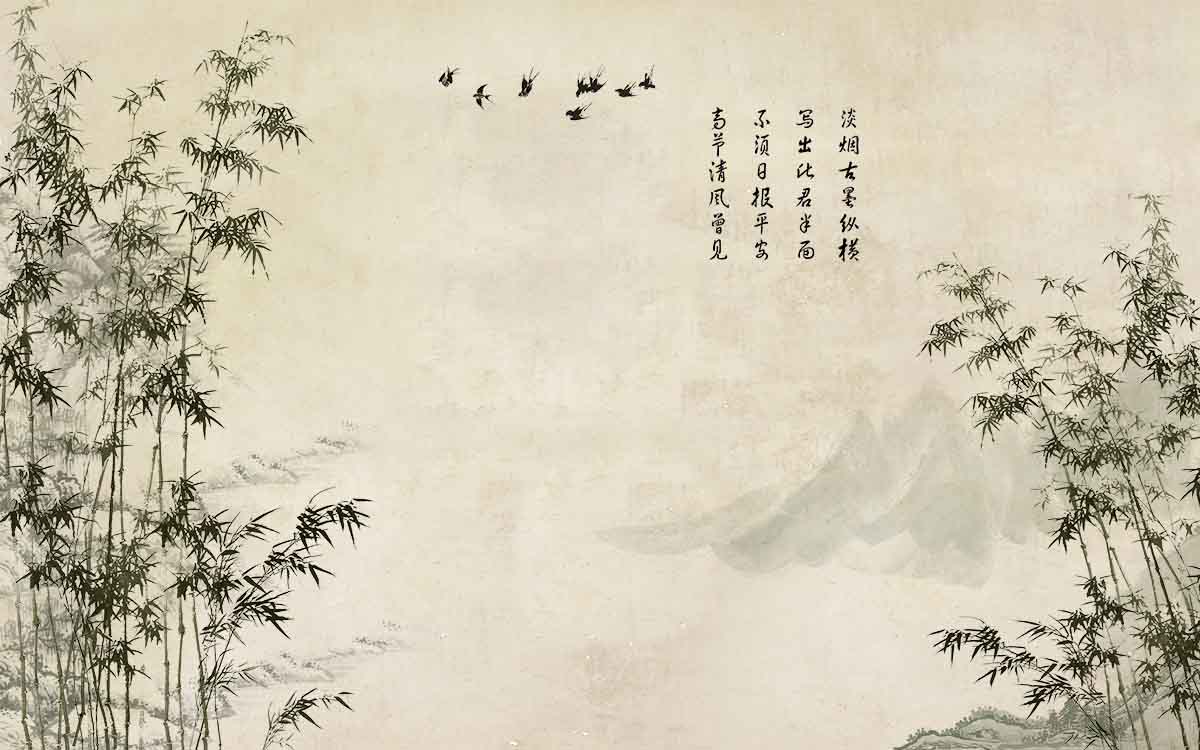 淡烟古墨纵横
写出此君半面
不须日报平安
高节清风曾见